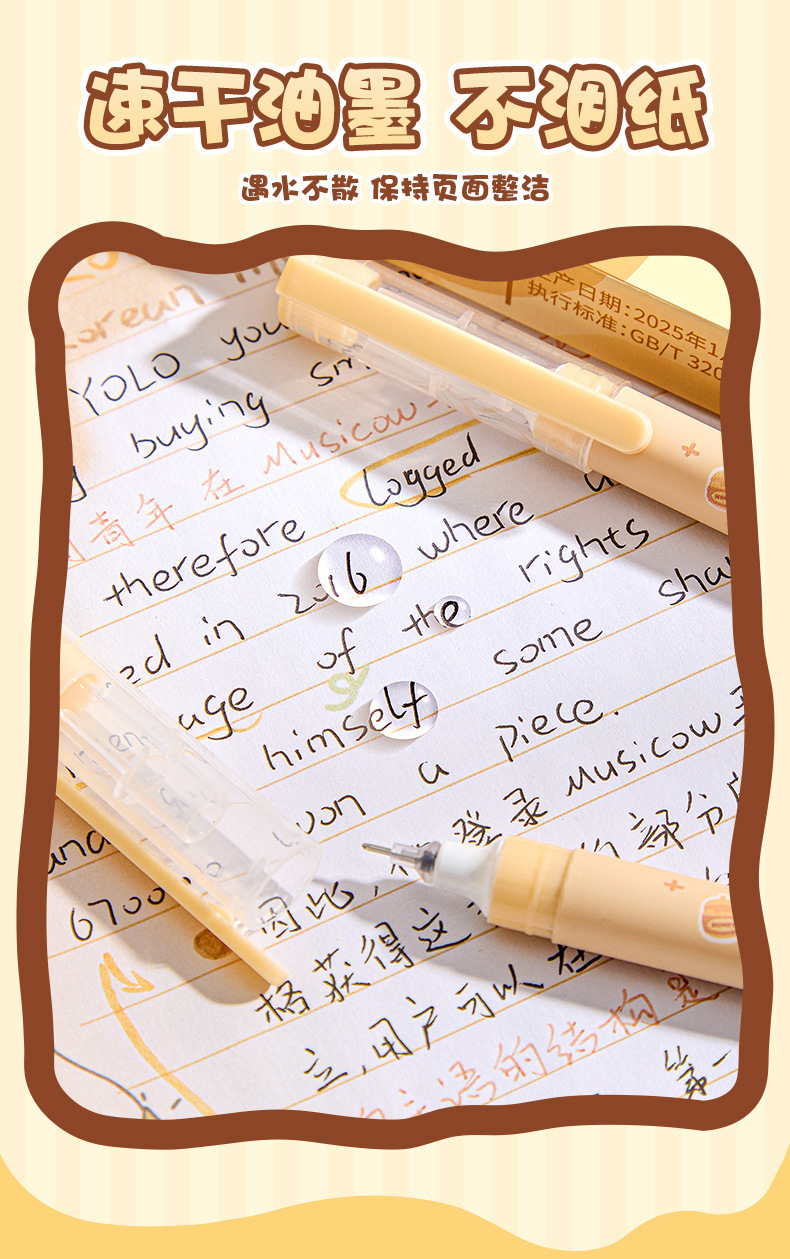 速干油墨 不洇纸
遇水不散 保持页面整洁
生产日期：2025年1
执行标准：GB/T 320
Korean
YOLO you
buying sm
青年 在 Musicow
logged
therefore where a
ed in 2016 rights
age of the some sha
himself a piece.
upon 登录 Musicow
and 部分
6700 因此，
格获得这
立，用户可以在
主语的结构是
第一